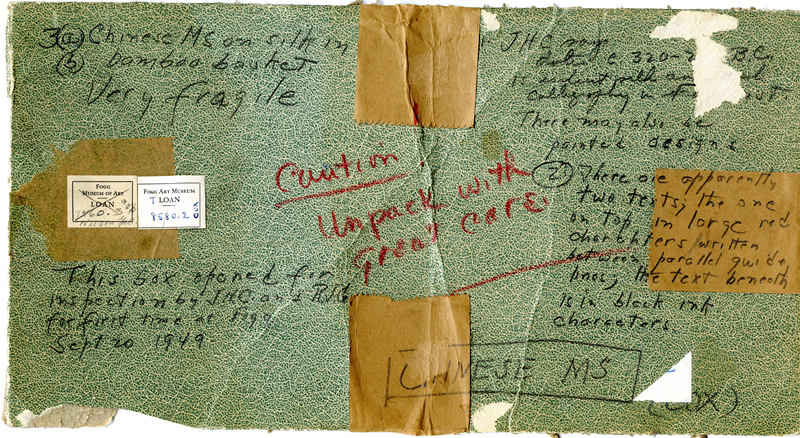 3(a) Chinese MS on silk in
(b) bamboo basket.
Very fragile
FOGG
MUSEUM OF ART
LOAN
FOGG ART MUSEUM
T LOAN
8580.2 COX
This box opened for
inspection by JHC and
for first time at Fogg
Sept 20 1949
Caution.
Unpack with
great care.
JHC says
date c 320- B.C.
There may also be
painted designs
(2) There are apparently
two texts; the one
on top in large red
characters written
between parallel guide
lines; the text beneath
is in black ink
characters.
CHINESE MS
(COX)